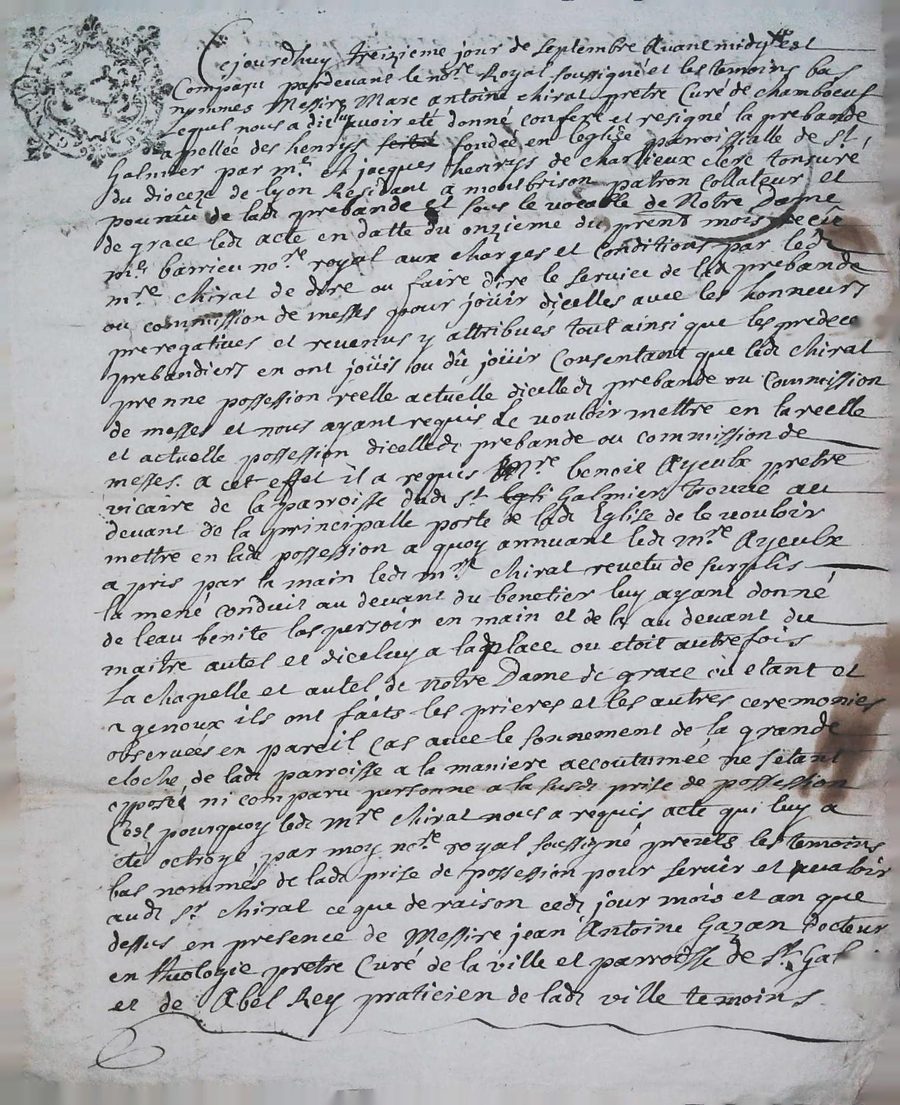 Cejourdhuy treizieme jour de septembre Avant midy est
Comparu pardevant le nore Royal soussigné et les temoins bas
nommes Messire Marc antoine chirat pretre Curé de chamboeuf
Lequel nous a dit avoir eté donné conferé et resigné la prebande
appellée des henrys fondée en leglise parroissialle de St
Galmier par mre jacques henrys de charlieux clerc tonsuré
du dioceze de lyon Residant a montbrison patron Collateur et
pourvu de ladt prebande et sous le vocable de Notre Dame
de grace ledt acte en datte du onzieme du prent mois
me barrieu nore royal aux charges et Conditions par ledt
mre chirat de dire ou faire dire le service de ladt prebande
ou commission de messes pour joüir dicelles avec les honneurs
preregatives et revenus y attribues tout ainsi que les predece
prebandiers en ont joüis ou dû joüir Consentant que ledt chirat
prenne possession réelle actuelle dicelledt prebande ou Commission
de messes et nous ayant requis de vouloir mettre en la reelle
et actuelle possession dicelledt prebande ou commission de
messes. a cet effet il a requis mre benoit Ayeulx pretre
vicaire de la parroisse dudt St Galmier trouvé au
devant de la principalle porte de ladt Eglise de le vouloir
mettre en ladt possession a quoy annuant ledt mre Ayeulx
a pris par la main ledt mre chirat revetu de surplis
la mené conduit au devant du benetier luy ayant donné
de leau benite laspersoir en main et de la au devant du
maitre autel et diceluy a la place ou etoit autrefois
La chapelle et autel de Notre Dame de grace ou etant et
a genoux ils ont faits les prieres et les autres ceremonies
observées en pareil Cas avec le sonnement de la grande
cloche de ladt parroisse a la maniere accoutumée ne setant
oposé ni comparu personne a la susdt prise de possession
C'est pourquoy ledt mre chirat nous a requis acte qui luy a
été octroyé par moy nore royal soussigné les temoins
bas nommés de ladt prise de possession pour servir et valoir
audt Sr chirat ce que de raison cedt jour mois et an que
dessus en presence de Messire jean Antoine Gazan Docteur
en theologie pretre Curé de la ville et parroisse de St Gal
et de Abel Rey praticien de ladt ville temoins